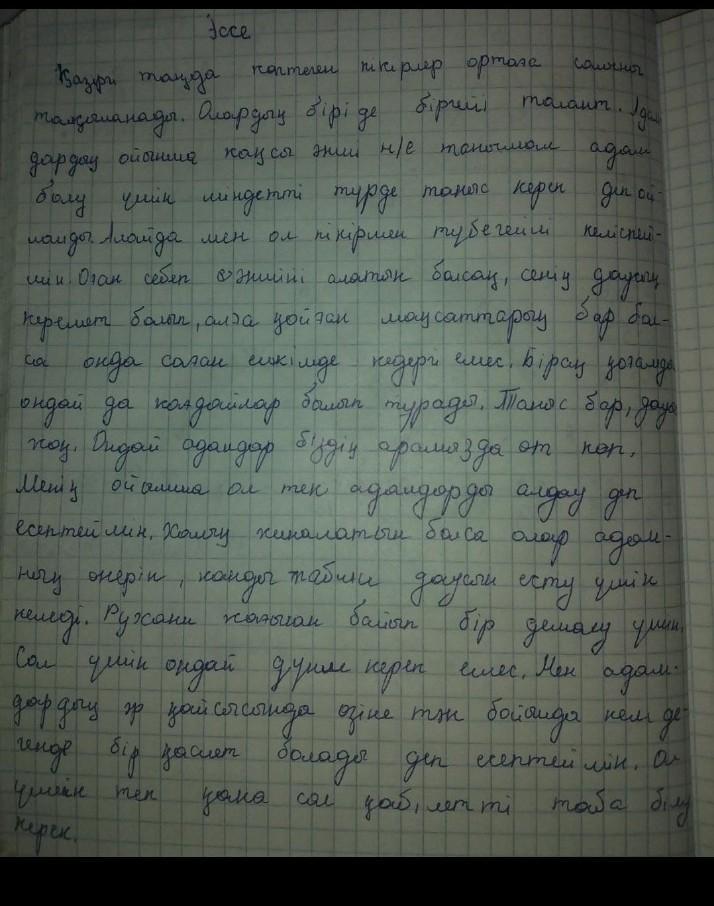 Эссе
Қазіргі таңда көптеген пікірлер ортаға салынып
талқыланады. Олардың бірі де бірегейі талант. Адам
дардың ойынша жақсы әнші н/е танымал адам
болу үшін міндетті түрде таныс керек деп ой-
лайды. Алайда мен ол пікірмен түбегейлі келіспей-
мін. Оған себеп әншіні алатын болсақ, сенің даусың
керемет болып, алға қойған мақсаттарың бар бол-
са онда саған ешкімде кедергі емес. Бірақ қоғамда
ондай да жағдайлар болып тұрады. Таныс бар, дауыс
жоқ. Ондай адамдар біздің арамызда өт көп.
Менің ойымша ол тек адамдарды алдау деп
есептеймін. Халық жиналатын болса олар адам-
ның өнерін, жанды табиғи даусын есту үшін
келеді. Рухани жағынан байып бір демалу үшін.
Сол үшін ондай дүние керек емес. Мен адам-
дардың әр қайсысында өзіне тән бойында кем де-
генде бір қасиет болады деп есептеймін. Ол
үшін тек қана сол қабілетті таба білу
керек.